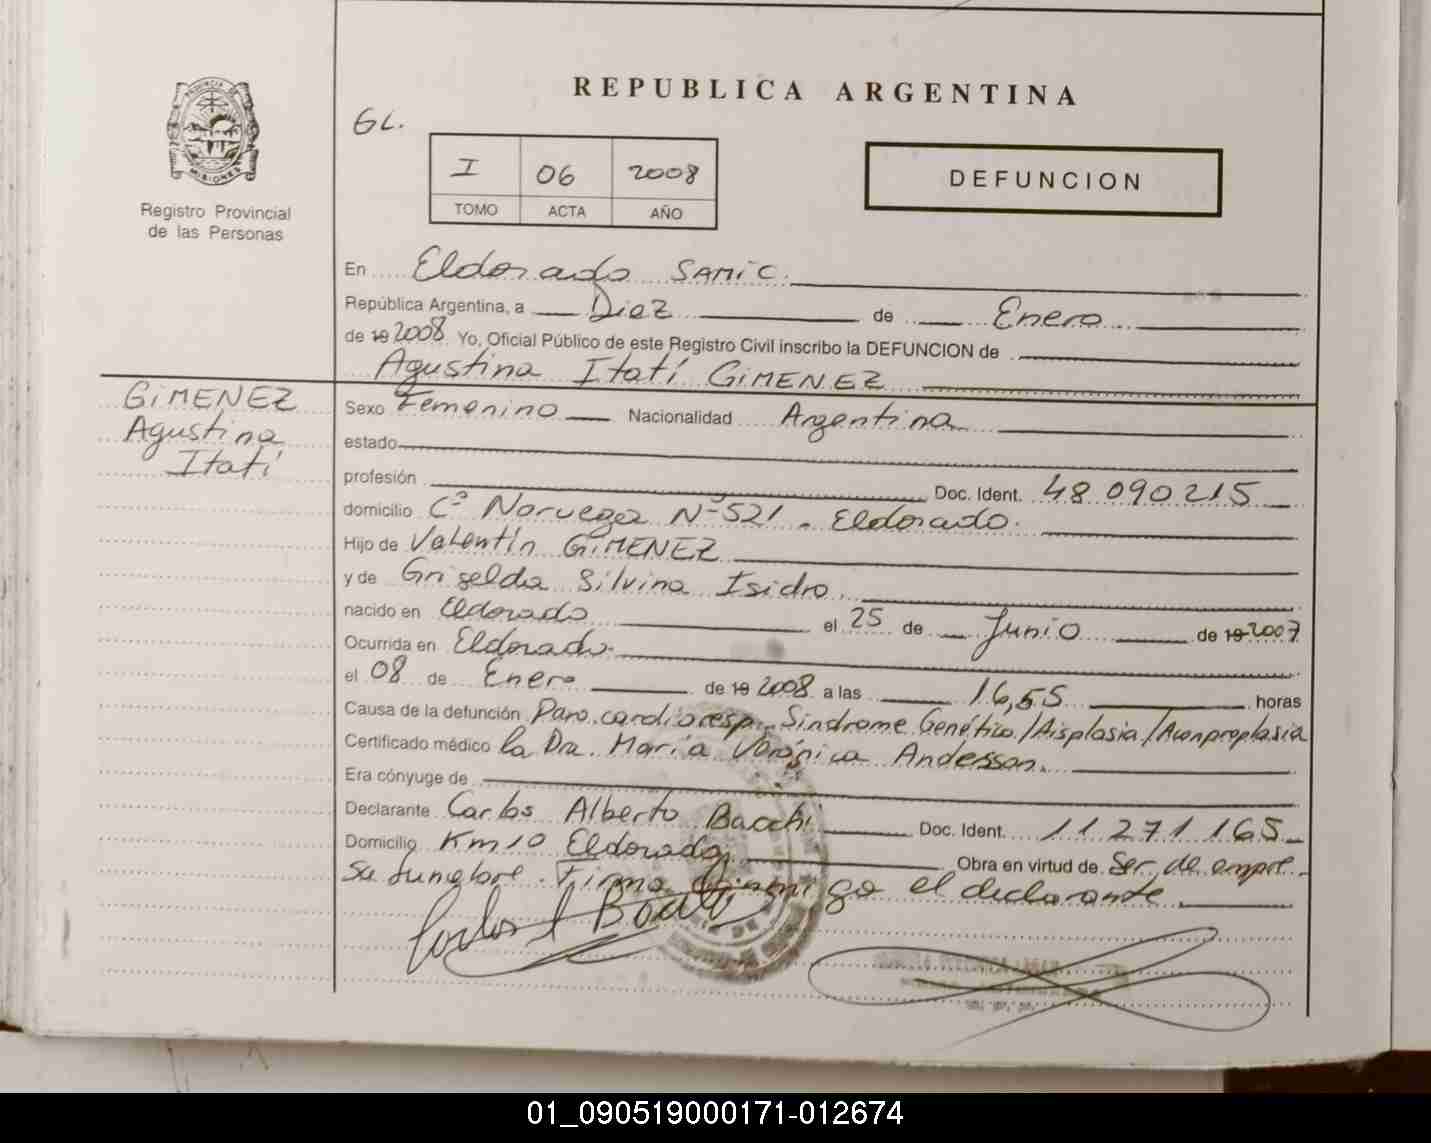 REPUBLICA ARGENTINA
GL.
I 06 2008
TOMO ACTA AÑO
DEFUNCION
PROVINCIA DE
MISIONES
Registro Provincial
de las Personas
En Eldorado SAMIC.
República Argentina, a Diez de Enero
de 19 2008 Yo, Oficial Público de este Registro Civil inscribo la DEFUNCION de
Agustina Itatí GIMENEZ
GIMENEZ
Agustina
Itatí
Sexo Femenino Nacionalidad Argentina
estado
profesión Doc. Ident. 48.090.215
domicilio Cº Noruega Nº 521. Eldorado.
Hijo de Valentín GIMENEZ
y de Griselda Silvina Isidro
nacido en Eldorado el 25 de Junio de 19 2007
Ocurrida en Eldorado.
el 08 de Enero de 19 2008 a las 16,55 horas
Causa de la defunción Paro cardioresp. Sindrome Genético/Aisplasia/Aconproplasia
Certificado médico la Dra. María Verónica Andersson.
Era cónyuge de
Declarante Carlos Alberto Bacchi Doc. Ident. 11.271.165
Domicilio Km 10 Eldorado, Obra en virtud de Ser de empre
sa funebre. Firma conmigo el declarante
01_090519000171-012674